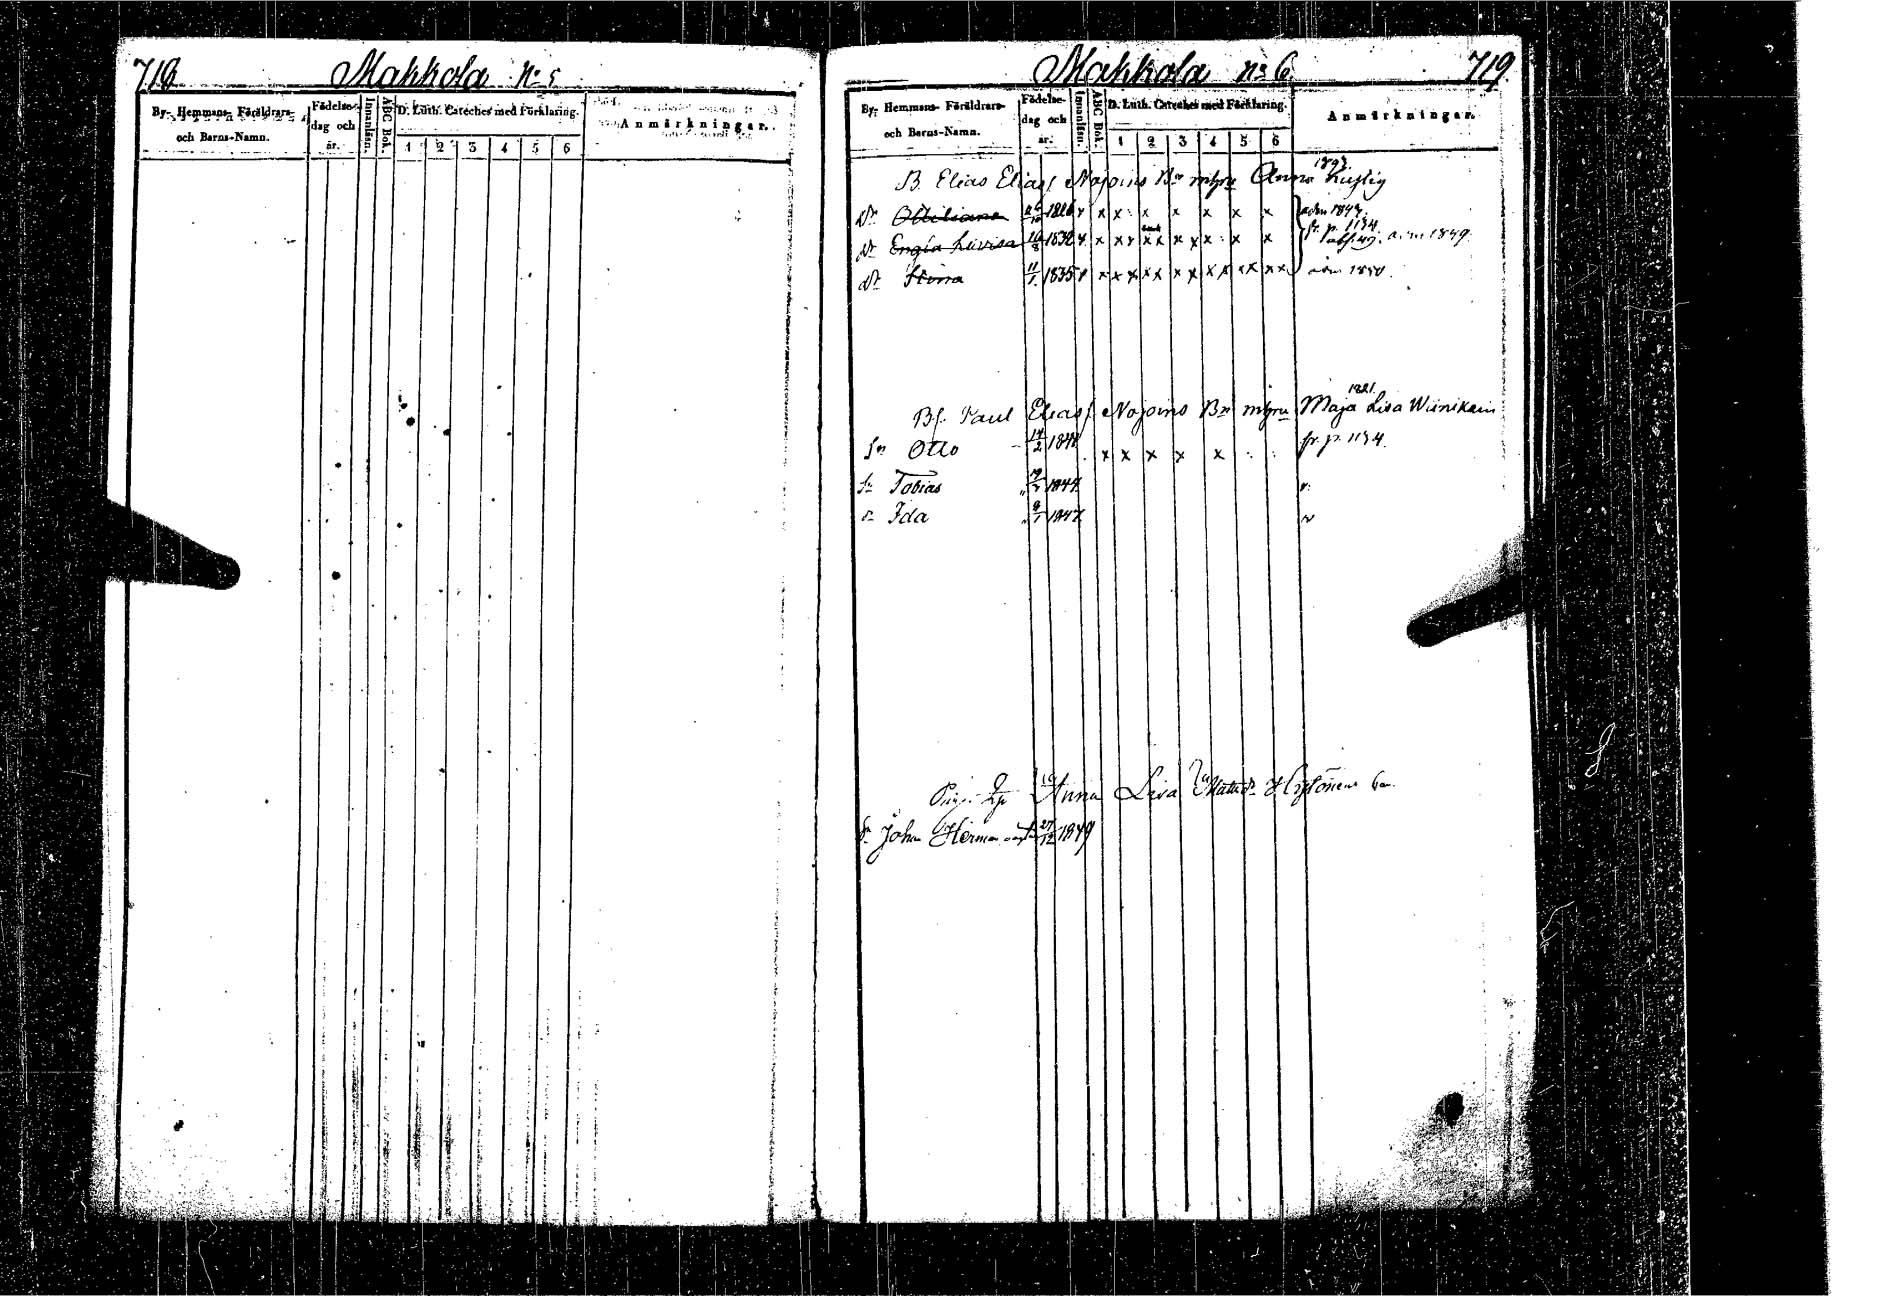 718 Makkola No 5
By- Hemmans- Föräldrars-
och Barns-Namn.
Födelse-
dag och
år.
Innanläsn.
ABC Bok.
D. Luth. Cateches med Förklaring.
1 2 3 4 5 6
Anmärkningar.
Makkola No 6 719
By- Hemmans- Föräldrars-
och Barns-Namn.
Födelse-
dag och
år.
Innanläsn.
ABC Bok.
D. Luth. Cateches med Förklaring.
1 2 3 4 5 6
Anmärkningar.
B. Elias Eliass Nojoins Bn m hru Anna
Dr 1826 x x x x x x x x adm 1847.
fr. p. 1134.
Dr Engla Lovisa 16/8 1832 x x x x x x x x x x adm 1849.
Dr Stina 11/1 1835 x x x x x x x x x x x x x x adm 1850.
1821.
Bs. Paul Eliass Nojoins Bn m hru Maja Lisa Wiinikain
Sn Otto 14/2 1841 x x x x x fr. p. 1134.
Sn Tobias 1844
Dr Ida 1847
Anna Lisa Hyttönens barn
Sn Johan Herman 27/12 1849